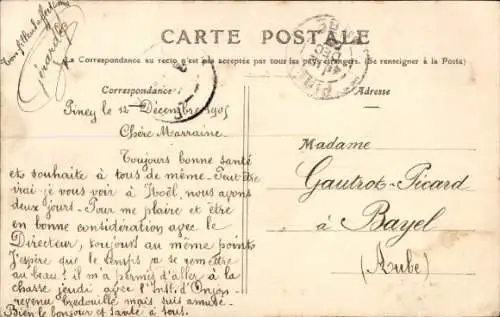 Ton filleul affectionné
Gérard
CARTE POSTALE
La Correspondance au recto n'est pas acceptée par tous les pays étrangers. (Se renseigner à la Poste)
Correspondance
Adresse
Piney le 12 Décembre 1905
Chère Marraine
Toujours bonne santé
et souhaite à tous de même. Peut-être
vrai je vous voir à Noël, nous ayons
deux jours. Pour me plaire et être
en bonne considération avec le
Directeur, toujours au même point
J'espère que le temps va se remettre
au beau! il m'a permis d'aller à la
chasse jeudi avec l'Inst. d'Onjon
revenu bredouille mais suis amusé.
Bien le bonjour et santé à tous.
Madame
Gautrot-Picard
à Bayel
(Aube)